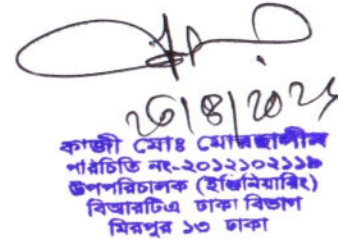 কাজী মোঃ মোরছালীন
পরিচিতি নং-২০১২১০২১১৮
উপপরিচালক (ইঞ্জিনিয়ারিং)
বিআরটিএ ঢাকা বিভাগ
মিরপুর ১৩ ঢাকা